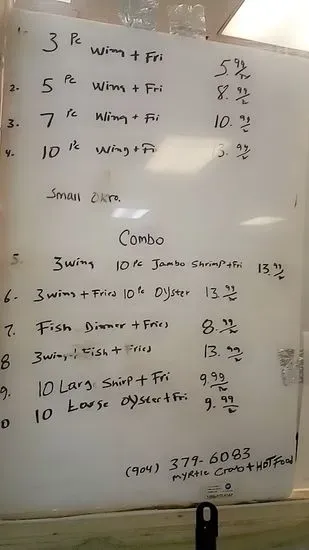 3 Pc Wing + Fri 5.99
2. 5 Pc Wing + Fri 8.99
3. 7 Pc Wing + Fri 10.99
4. 10 Pc Wing + Fri 13.99
Small Okro.
Combo
5. 3 wing 10 Pc Jambo Shrimp + Fri 13.99
6. 3 wins + Fries 10 Pc Oyster 13.99
7. Fish Dinner + Fries 8.99
8 3 wing + Fish + Fries 13.99
9. 10 Larg Shirp + Fri 9.99
0 10 Large Oyster + Fri 9.99
(904) 379-6083
Myrtle Crab + Hot Food